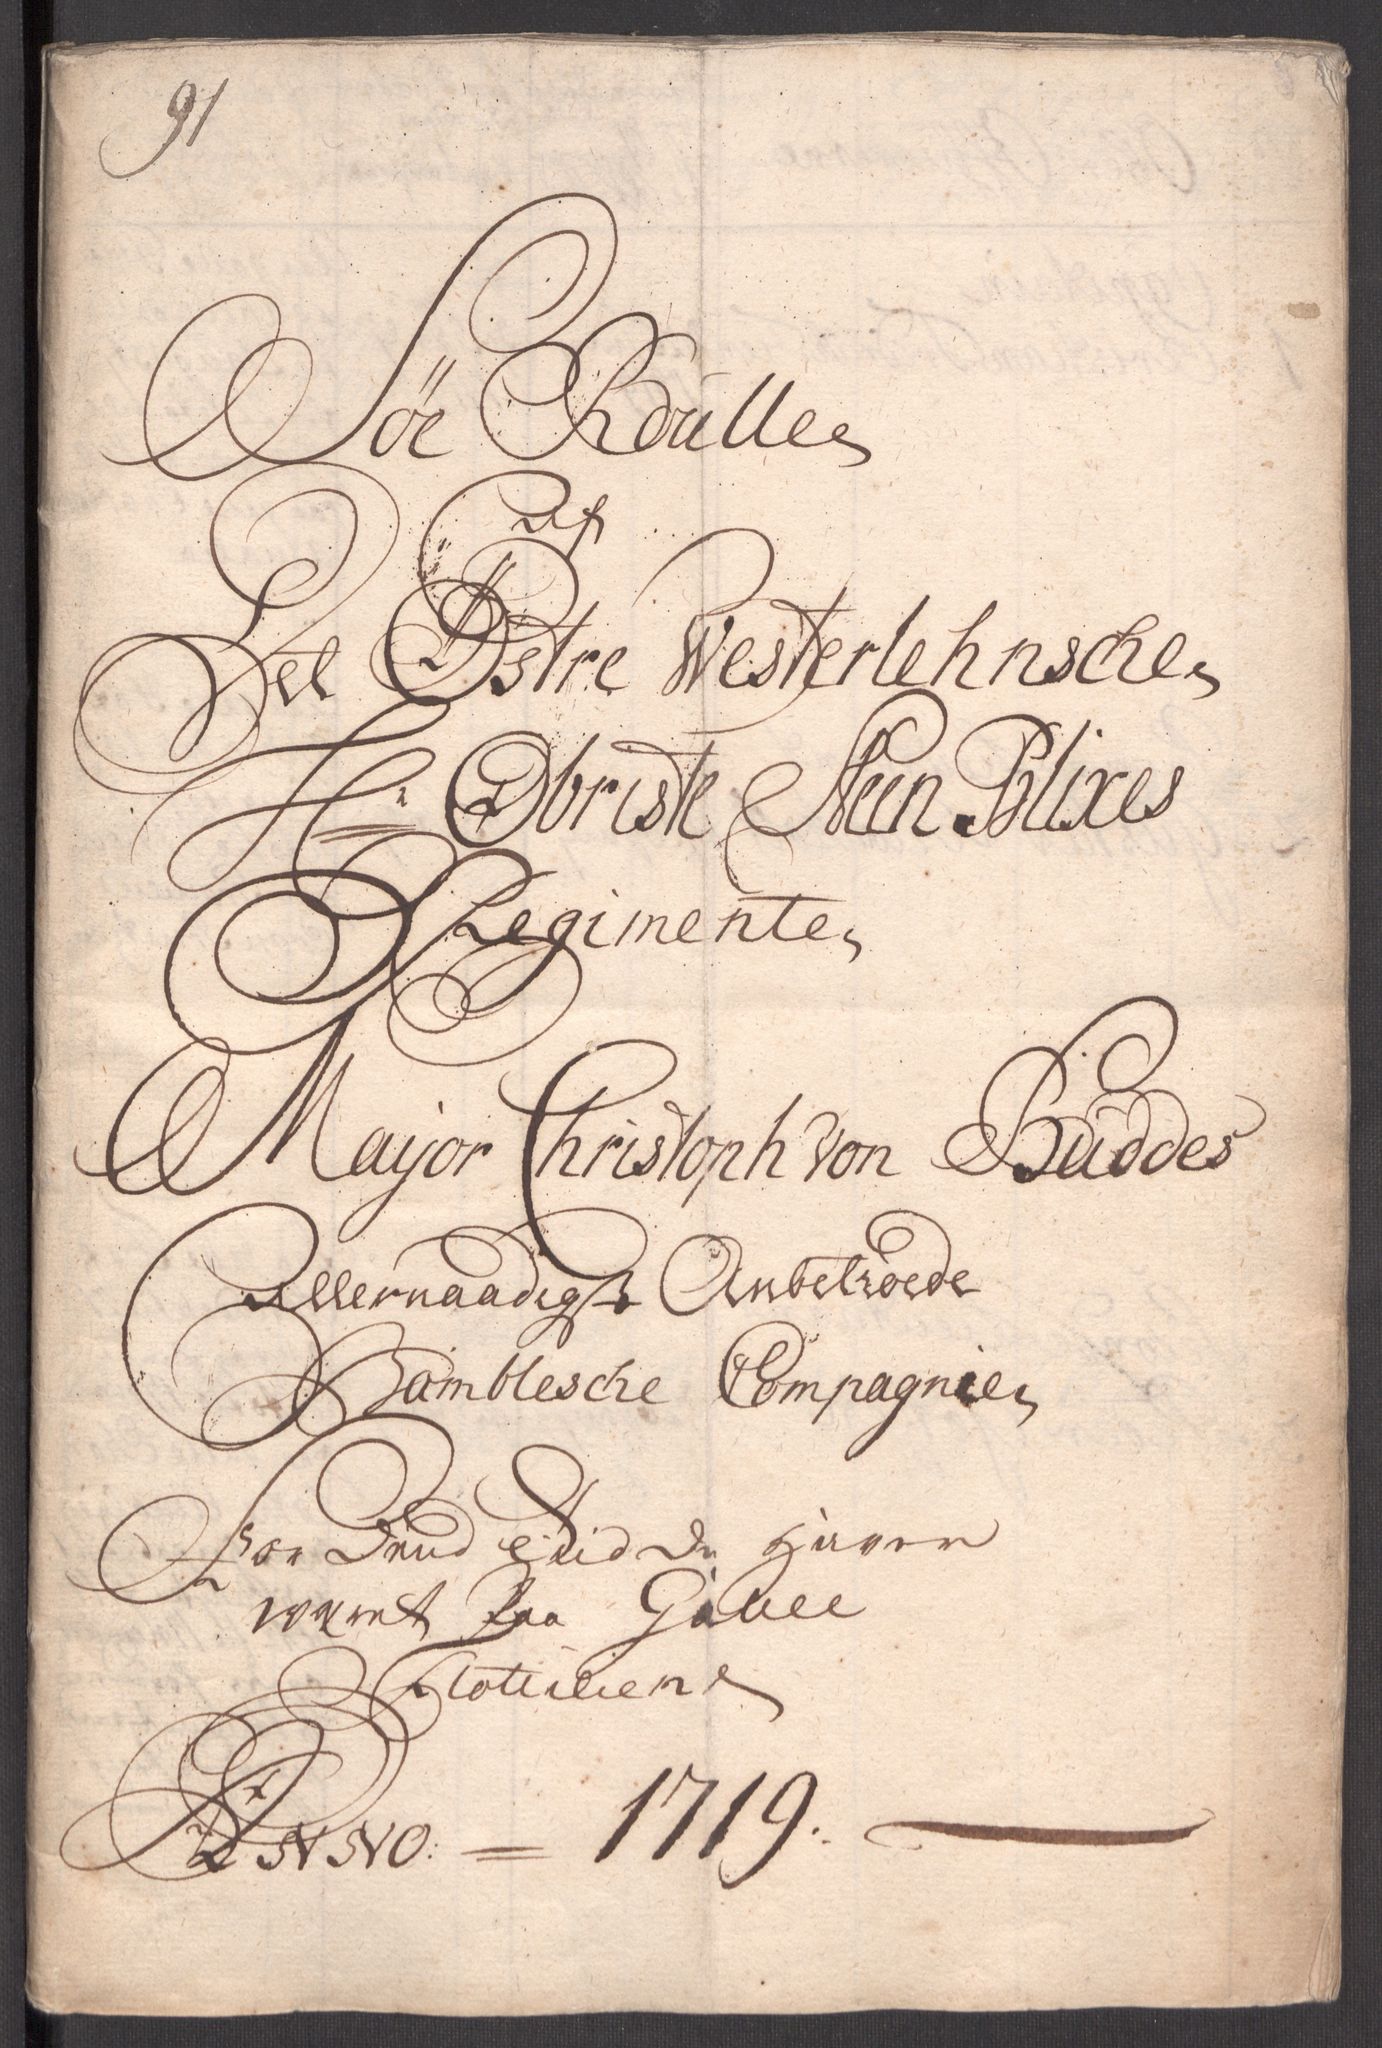 91
Söe Roulle
Af
Det Östre Westerlehnsche
Hr Obriste Sten Blixes
Regimente
Major Christoph von Buddes
Allernaadigst Anbetroede
Bamblesche Compagnie
For Dend Tiid De Haver
wæret Paa Galle
Flotilien
ANNO: = 1719.